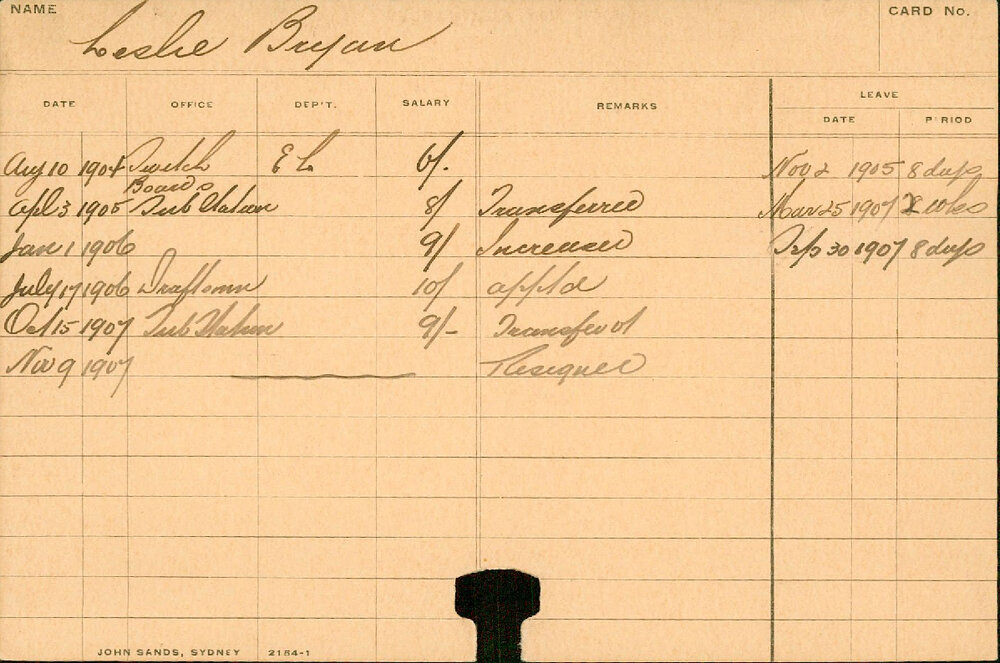 NAME
CARD No.
Leslie Bryan
DATE OFFICE DEP'T. SALARY REMARKS LEAVE
DATE PERIOD
Aug 10 1904 Switch E L 6/. Nov 2 1905 8 days
Boards
Apl 3 1905 Sub Station 8/ Transferred Mar 25 1907 2 wks
Jan 1 1906 9/ Increased Sep 30 1907 8 days
July 17 1906 Draftsmn 10/ apptd
Oct 15 1907 Sub Statn 9/-
Nov 9 1907 Resigned
JOHN SANDS, SYDNEY 2184-1